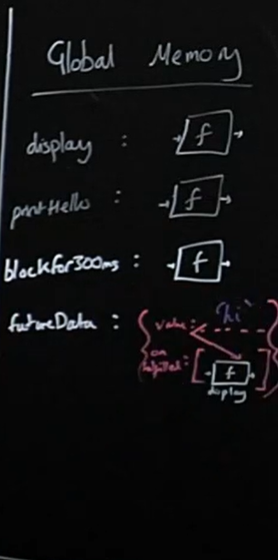 Global Memory
display : f
printHello : f
blockfor300ms : f
futureData : { value: "hi" }
on
fulfilled: [ f ]
display